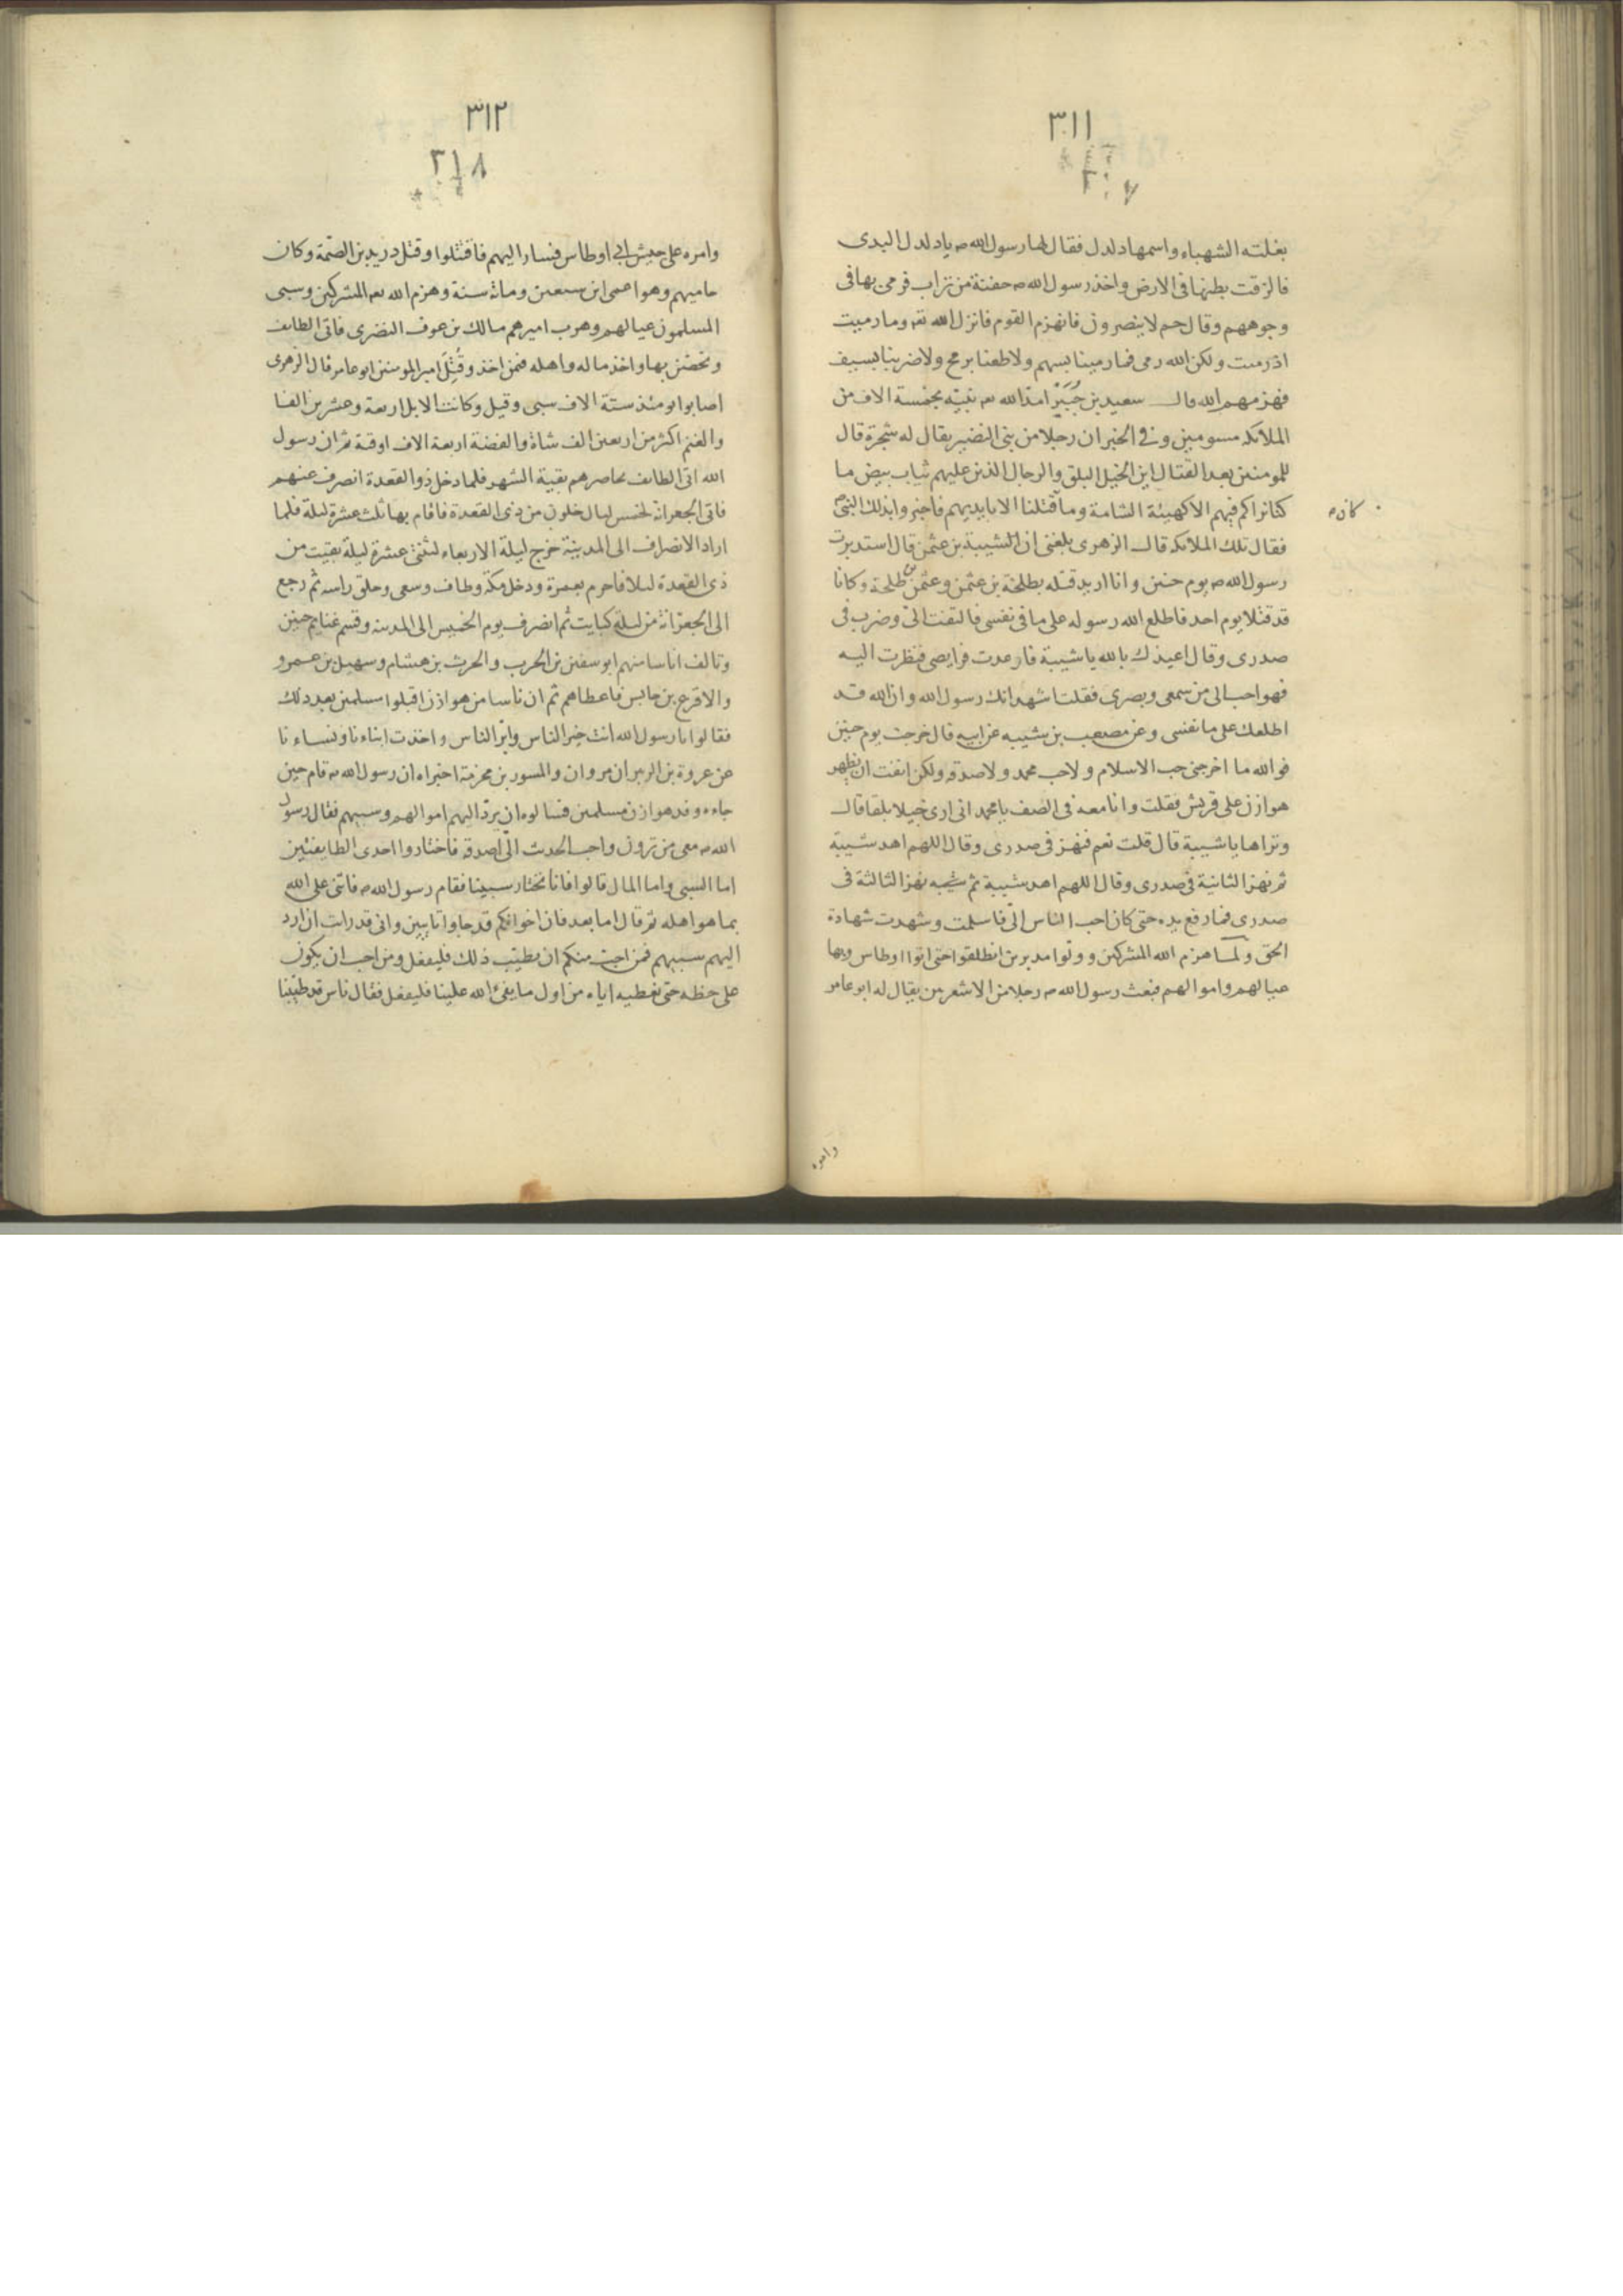 ٣١١
٣٠٧
بغلته الشهباء واسمها دلدل فقال لها رسول الله ص يا دلدل البدى
فالزقت بطنها فى الارض واخذ رسول الله ص حفنة من تراب فرمى بها فى
وجوههم وقال حم لا ينصرون فانهزم القوم فانزل الله تع وما رميت
اذ رميت ولكن الله رمى فما رمينا بسهم ولا طعنا برمح ولا ضربنا بسيف
فهزمهم الله قال سعيد بن جُبَيْر امد الله تع نبيّه بخمسة الاف من
الملائكه مسومين وفى الخبر ان رجلا من بنى النضير يقال له شجرة قال
للمومنين بعد القتال اين الخيل البلق والرجال الذين عليهم ثياب بيض ما
كنا نراكم فيهم الا كهيئة الشامة وما قتلنا الا بايديهم فاخبروا بذلك النبى ص
فقال تلك الملائكه قال الزهرى بلغنى ان الشيبة بن عثمن قال استدبرت
رسول الله ص يوم حنين وانا اريد قتله بطلحة بن عثمن وعثمن بن طلحة وكانا
قد قتلا يوم احد فاطلع الله رسوله على ما فى نفسى فالتفت الىّ وضرب فى
صدرى وقال اعيذك بالله يا شيبة فارعدت فرايصى فنظرت اليه
فهو احب الى من سمعى وبصرى فقلت اشهد انك رسول الله وان الله قد
اطلعك على ما نفسى وعن مصعب بن شيبه عن ابيه قال خرجت يوم حنين
فوالله ما اخرجنى حب الاسلام ولا حب محمد ولا صدقه ولكن انفت ان يظهر
هوازن على قريش فقلت وانا معه فى الصف يا محمد انى ارى خيلا بلقا قال
وتراها يا شيبة قال قلت نعم فنهز فى صدرى وقال اللهم اهد شيبة
ثم نهز الثانية فى صدرى وقال اللهم اهد شيبة ثم نهز الثالثة فى
صدرى فما رفع يده حتى كان احب الناس الىّ فاسلمت وشهدت شهادة
الحق ولما هزم الله المشركين وولّوا مدبرين انطلقوا حتى اتوا اوطاس وبها
عيالهم واموالهم فبعث رسول الله ص رجلا من الاشعرين يقال له ابو عامر
كان ص
وامره
٣١٢
٣١٨
وامره على جيش الى اوطاس فسار اليهم فاقتتلوا وقتل دريد بن الصّمة وكان
حاميهم وهو اعمى ابن سبعين ومائة سنة وهزم الله تع المشركين وسبى
المسلمون عيالهم وهرب اميرهم مالك بن عوف النضرى فاتى الطائف
وتحصّن بها واخذ ماله واهله فمن اخذ وقُتِلَ امير المومنين ابو عامر قال الزهرى
اصابوا يومئذ ستة الاف سبى وقيل وكانت الابل اربعة وعشرين الفا
والغنم اكثر من اربعين الف شاة والفضة اربعة الاف اوقية ثم ان رسول
الله اتى الطائف يحاصرهم بقية الشهر فلما دخل ذو القعدة انصرف عنهم
فاتى الجعرانة لخمس ليال خلون من ذى القعدة فاقام بها ثلث عشرة ليلة فلما
اراد الانصراف الى المدينة خرج ليلة الاربعاء لثنتى عشرة ليلة بقيت من
ذى القعدة ليلا فاحرم بعمرة ودخل مكة وطاف وسعى وحلق راسه ثم رجع
الى الجعرّانة من ليلة كبايت ثم انصرف يوم الخميس الى المدينه وقسم غنايم حنين
وتالف اناسا منهم ابو سفين بن الحرب والحرث بن هشام وسهيل بن عمرو
والاقرع بن حابس فاعطاهم ثم ان ناسا من هوازن اقبلوا مسلمين بعد ذلك
فقالوا يا رسول الله انت خير الناس وابرّ الناس واخذت ابناءنا ونساءنا
عن عروة بن الزبير ان مروان والمسور بن مخرمة اخبراه ان رسول الله ص قام حين
جاءه وفد هوازن مسلمين فسالوه ان يردّ اليهم اموالهم وسبيهم فقال رسول
الله ص معى من ترون واحب الحديث الىّ اصدقه فاختاروا احدى الطايفتين
اما السبى واما المال قالوا فانا نختار سبينا فقام رسول الله ص فاثنى على الله
بما هو اهله ثم قال اما بعد فان اخوانكم قد جاوا تايبين وانى قد رايت ان ارد
اليهم سبيهم فمن احبّ منكم ان يطيّب ذلك فليفعل ومن احب ان يكون
على حظه حتى نعطيه اياه من اول ما يفئ الله علينا فليفعل فقال ناس قد طيّبنا